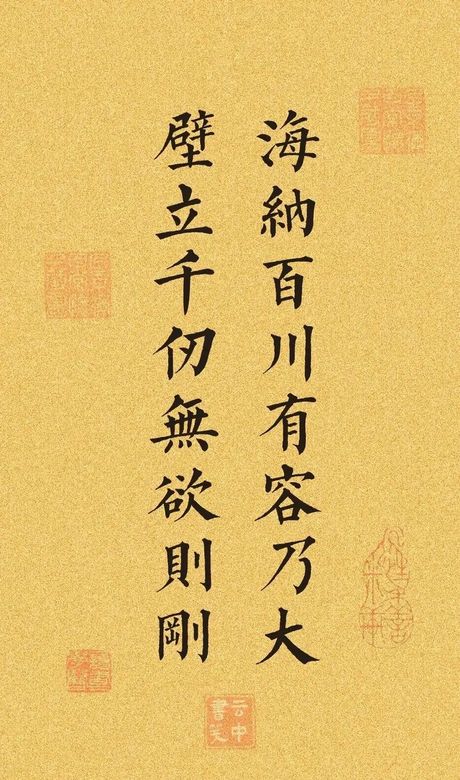 海納百川有容乃大
壁立千仞無欲則剛
云中
書笺